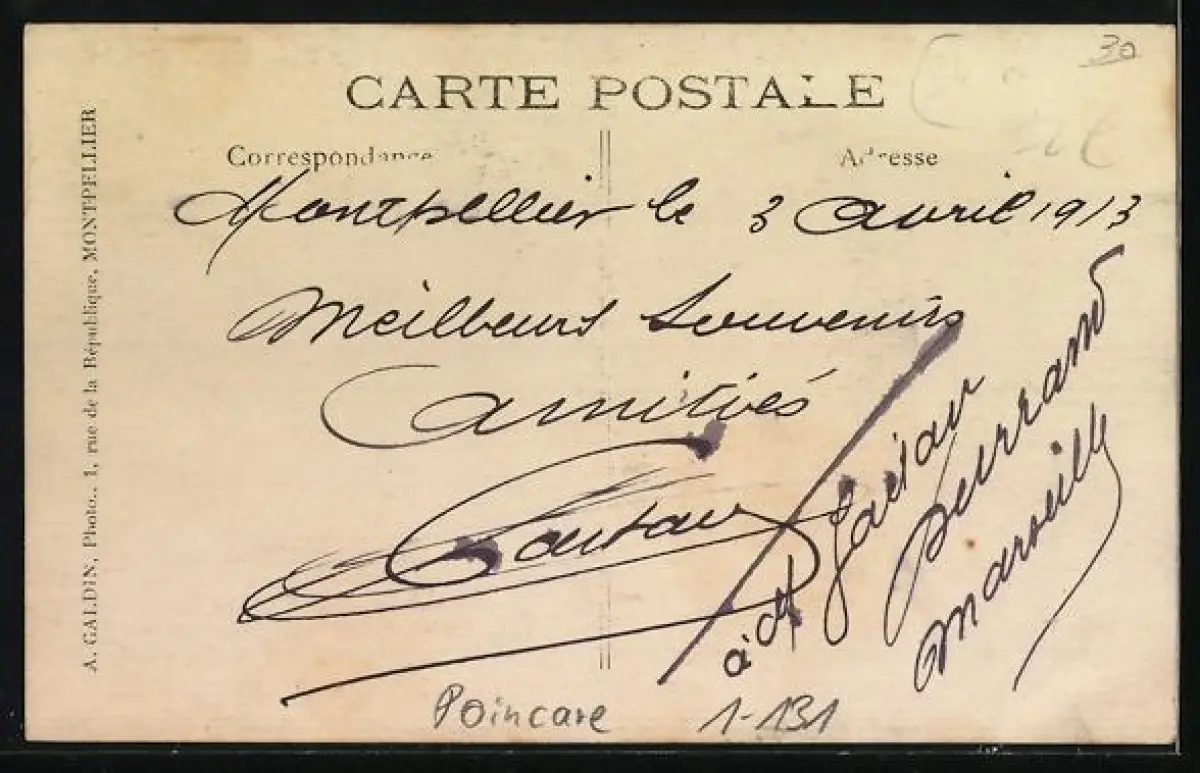 30
CARTE POSTALE
Correspondance
Adresse
Montpellier le 3 avril 1913
Meilleurs souvenirs
amitiés
à M Gaëtan
Durrand
Marseille
A. GALDIN, Photo., 1, rue de la République, MONTPELLIER
Poincare
1-131